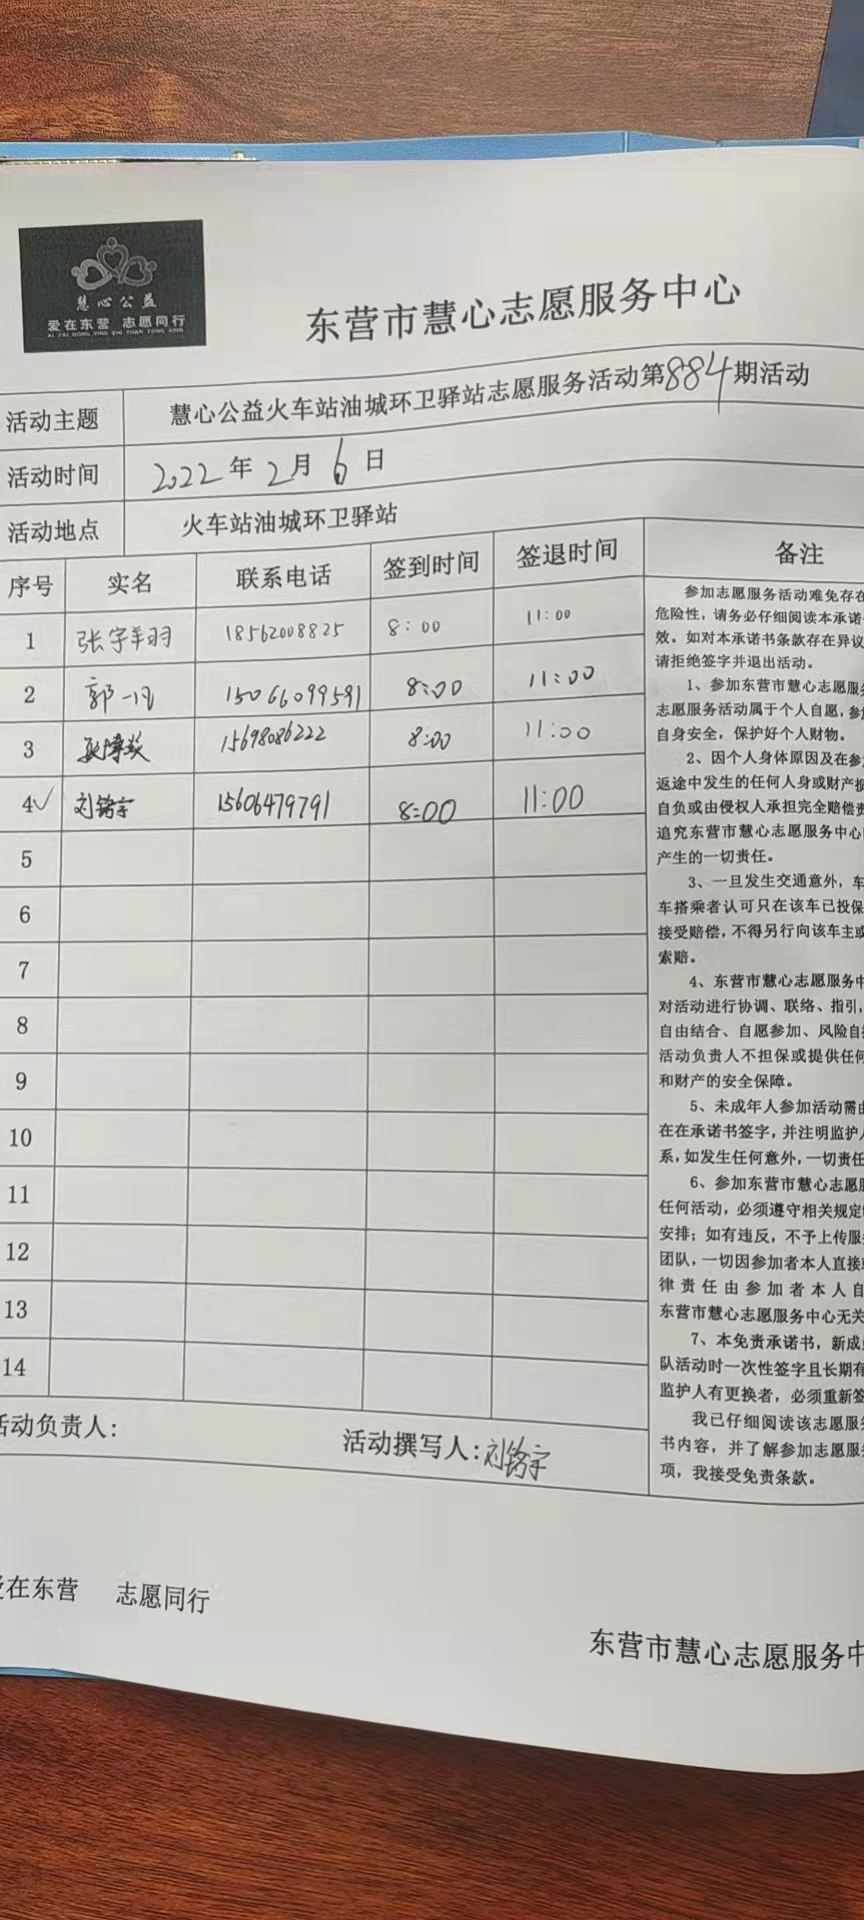 慧心公益
爱在东营 志愿同行
AI ZAI DONG YING ZHI YUAN TONG XING
东营市慧心志愿服务中心
活动主题 慧心公益火车站油城环卫驿站志愿服务活动第884期活动
活动时间 2022年2月6日
活动地点 火车站油城环卫驿站
序号 实名 联系电话 签到时间 签退时间 备注
1 张宇翔 18562008825 8:00 11:00
2 郭一凡 15066099591 8:00 11:00
3 15698086222 8:00 11:00
4✓ 刘铭宇 15606479791 8:00 11:00
5
6
7
8
9
10
11
12
13
14
参加志愿服务活动难免存在
危险性，请务必仔细阅读本承诺
效。如对本承诺书条款存在异议
请拒绝签字并退出活动。
1、参加东营市慧心志愿服
志愿服务活动属于个人自愿，参
自身安全，保护好个人财物。
2、因个人身体原因及在参
返途中发生的任何人身或财产损
自负或由侵权人承担完全赔偿责
追究东营市慧心志愿服务中心
产生的一切责任。
3、一旦发生交通意外，车
车搭乘者认可只在该车已投保
接受赔偿，不得另行向该车主或
索赔。
4、东营市慧心志愿服务中
对活动进行协调、联络、指引，
自由结合、自愿参加、风险自
活动负责人不担保或提供任何
和财产的安全保障。
5、未成年人参加活动需由
在在承诺书签字，并注明监护人
系，如发生任何意外，一切责任
6、参加东营市慧心志愿服
任何活动，必须遵守相关规定
安排；如有违反，不予上传服
团队，一切因参加者本人直接或
律责任由参加者本人自
东营市慧心志愿服务中心无关
7、本免责承诺书，新成
队活动时一次性签字且长期有
监护人有更换者，必须重新签
我已仔细阅读该志愿服务
书内容，并了解参加志愿服务
项，我接受免责条款。
活动负责人： 活动撰写人：刘铭宇
爱在东营 志愿同行
东营市慧心志愿服务中